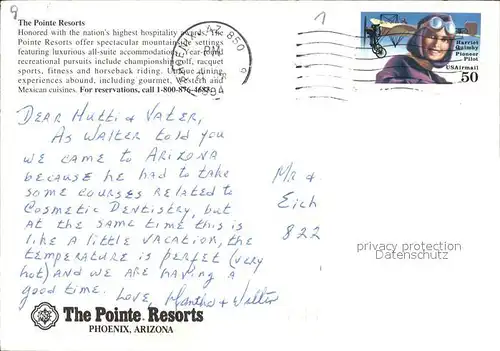 9
The Pointe Resorts
Honored with the nation's highest hospitality awards, The
Pointe Resorts offer spectacular mountainside settings
featuring luxurious all-suite accommodations. Year-round
recreational pursuits include championship golf, racquet
sports, fitness and horseback riding. Unique dining
experiences abound, including gourmet, Western and
Mexican cuisines. For reservations, call 1-800-876-4683.
PHOENIX, AZ 850
PM
1994
Harriet
Quimby
Pioneer
Pilot
USAirmail
50
DEAR MUTTI & VATER,
AS WALTER told you
WE CAME to ARIZONA
because he had to take
some courses Related to
Cosmetic Dentistry, but
At the same time this is
like A little vacation, the
temperature is perfet (very
hot) AND WE ARE hAVING A
good time. Love, Martha & Walter
Mr &
Eich
822
privacy protection
Datenschutz
The Pointe Resorts
PHOENIX, ARIZONA